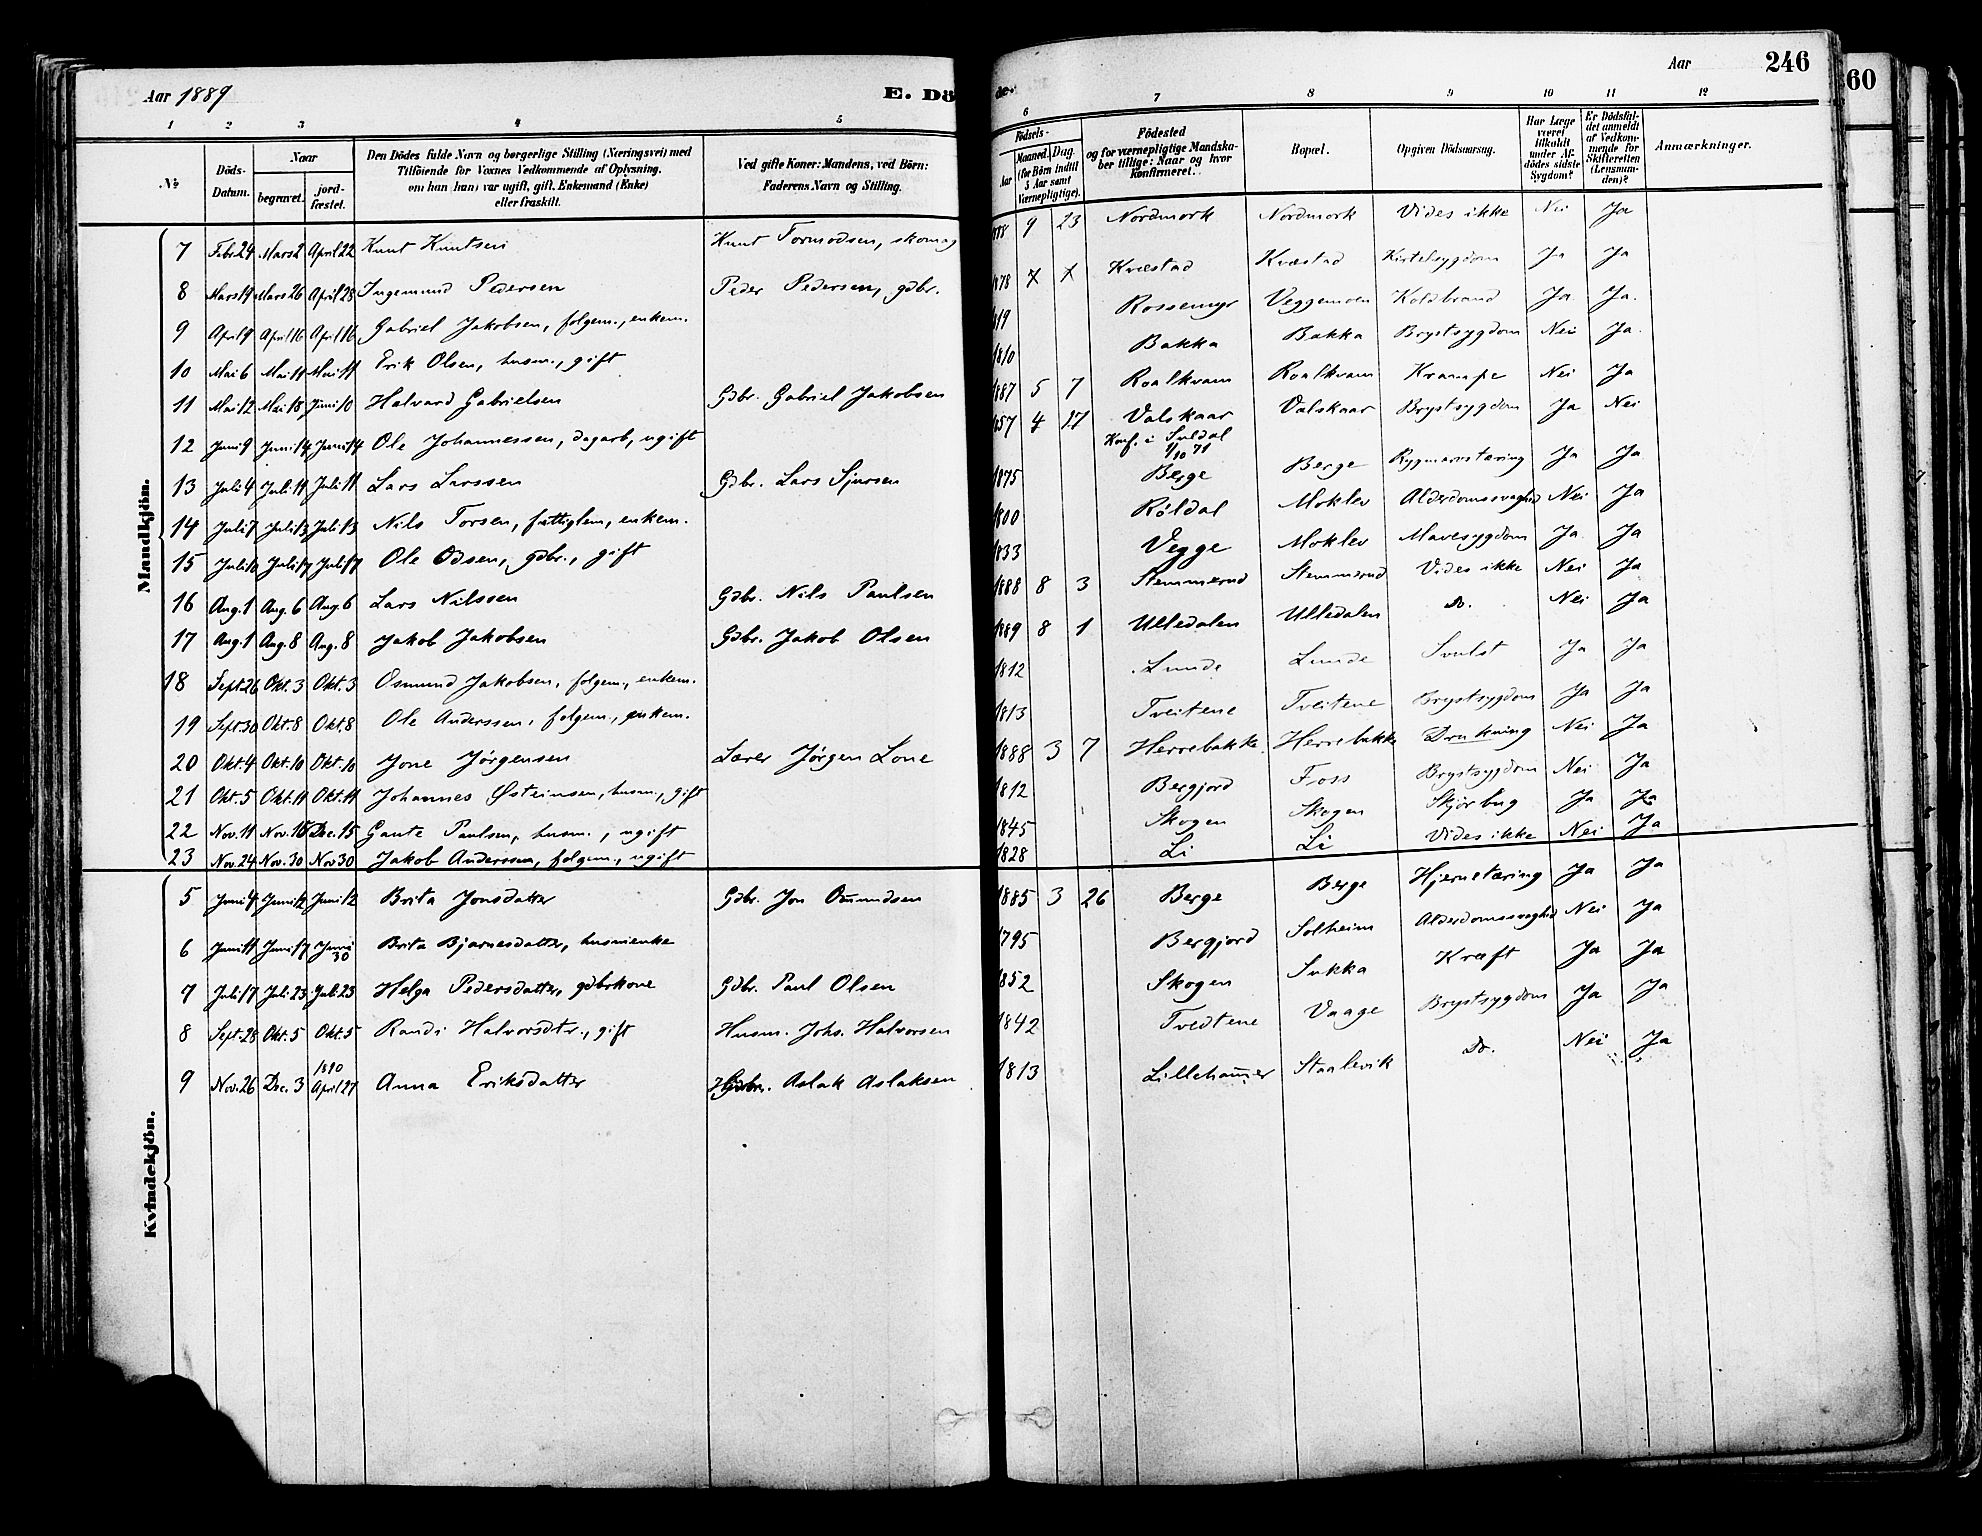 Aar 1889
E. Dö
de.
Aar
246
60
1 2 3 4 5 6 7 8 9 10 11 12
№
Döds-Datum.
Naar
begravet.
jord-fæstet.
Den Dödes fulde Navn og borgerlige Stilling (Næringsvei) med
Tilföiende for Voxnes Vedkommende af Oplysning,
om han (hun) var ugift, gift, Enkemand (Enke)
eller fraskilt.
Ved gifte Koner: Mandens, ved Börn:
Faderens Navn og Stilling.
Födsels-
Aar
Maaned. Dag.
(for Börn indtil
5 Aar samt
Værnepligtige).
Födested
og for værnepligtige Mandska-
ber tillige: Naar og hvor
Konfirmeret.
Bopæl.
Opgiven Dödsaarsag.
Har Læge
været
tilkaldt
under Af-
dödes sidste
Sygdom?
Er Dödsfal-
det anmeldt
af Vedkom-
mende for
Skifteretten
(Lensman-
den)?
Anmærkninger.
Mandkjön.
7 Febr. 24 Mars 2 April 22 Knut Knutsen Knut Tormodsen, skomag 9 23 Nordmork Nordmork Vides ikke Nei Ja
8 Mars 19 Mars 26 April 28 Ingemund Pedersen Peder Pedersen, gdbr. 1878 x x Kvæstad Kvæstad Kirtelsygdom Ja Ja
9 April 9 April 16 April 16 Gabriel Jakobsen, folgem., enkem. 1819 Rossemyr Veggemoen Koldbrand Ja Ja.
10 Mai 6 Mai 11 Mai 11 Erik Olsen, husm., gift 1810 Bakka Bakka Brystsygdom Nei Ja.
11 Mai 12 Mai 18 Juni 10 Halvard Gabrielsen Gdbr. Gabriel Jakobsen 1887 5 7 Roalkvam Roalkvam Krampe Nei Ja
12 Juni 9 Juni 14 Juni 14 Ole Johannessen, dagarb., ugift 1857 4 17 Valskaar Valskaar Brystsygdom Ja Nei
Konf. i Suldal
1/10 71
13 Juli 4 Juli 11 Juli 11 Lars Larssen Gdbr. Lars Sjursen 1875 Berge Berge Rygmarvstæring Ja Ja
14 Juli 7 Juli 13 Juli 13 Nils Torsen, fattiglem, enkem. 1800 Røldal Moklev Alderdomssvaghed Nei Ja
15 Juli 10 Juli 17 Juli 17 Ole Odsen, gdbr., gift 1833 Vegge Moklev Mavesygdom Ja Ja
16 Aug. 1 Aug. 6 Aug. 6 Lars Nilssen Gdbr. Nils Paulsen 1888 8 3 Stemmerud Stemmerud Vides ikke Nei Ja
17 Aug. 1 Aug. 8 Aug. 8 Jakob Jakobsen Gdbr. Jakob Olsen 1889 8 1 Ulledalen Ulledalen Do. Nei Ja
18 Sept. 26 Okt. 3 Okt. 3 Osmund Jakobsen, folgem., enkem. 1812 Lunde Lunde Svulst Ja Ja
19 Sept. 30 Okt. 8 Okt. 8 Ole Anderssen, folgem., enkem. 1813 Tveitene Tveitene Brystsygdom Ja Ja
20 Okt. 4 Okt. 10 Okt. 10 Jone Jørgensen Lærer Jørgen Lone 1888 3 7 Herrebakke Herrebakke Drukning Nei Ja
21 Okt. 5 Okt. 11 Okt. 11 Johannes Østeinsen, husm., gift 1812 Bergjord Foss Brystsygdom Nei Ja
22 Nov. 11 Nov. 15 Dec. 15 Gaute Paulsen, husm., ugift 1845 Skogen Skogen Skjørbug Ja Ja
23 Nov. 24 Nov. 30 Nov 30 Jakob Anderssen, folgem., ugift 1828 Li Li Vides ikke Nei Ja
Kvindekjön.
5 Juni 4 Juni 12 Juni 12 Brita Jonsdatter Gdbr. Jon Osmundsen 1885 3 26 Berge Berge Hjernetæring Ja Ja
6 Juni 11 Juni 17 Juni 30 Brita Bjarnesdatter, husmienke 1795 Bergjord Solheim Alderdomssvaghed Nei Ja
7 Juli 17 Juli 23 Juli 23 Helga Pedersdatter, gdbrkone Gdbr. Paul Olsen 1852 Skogen Sukka Kræft Ja Ja
8 Sept. 28 Okt. 5 Okt. 5 Randi Halvorsdtr., gift Husm. Johs. Halvorsen 1842 Tvedtene Vaage Brystsygdom Ja Ja
9 Nov. 26 Dec. 3 1890 April 27 Anna Eriksdatter Gdbr. Aslak Aslaksen 1813 Lillehammer Staalevik Do. Nei Ja